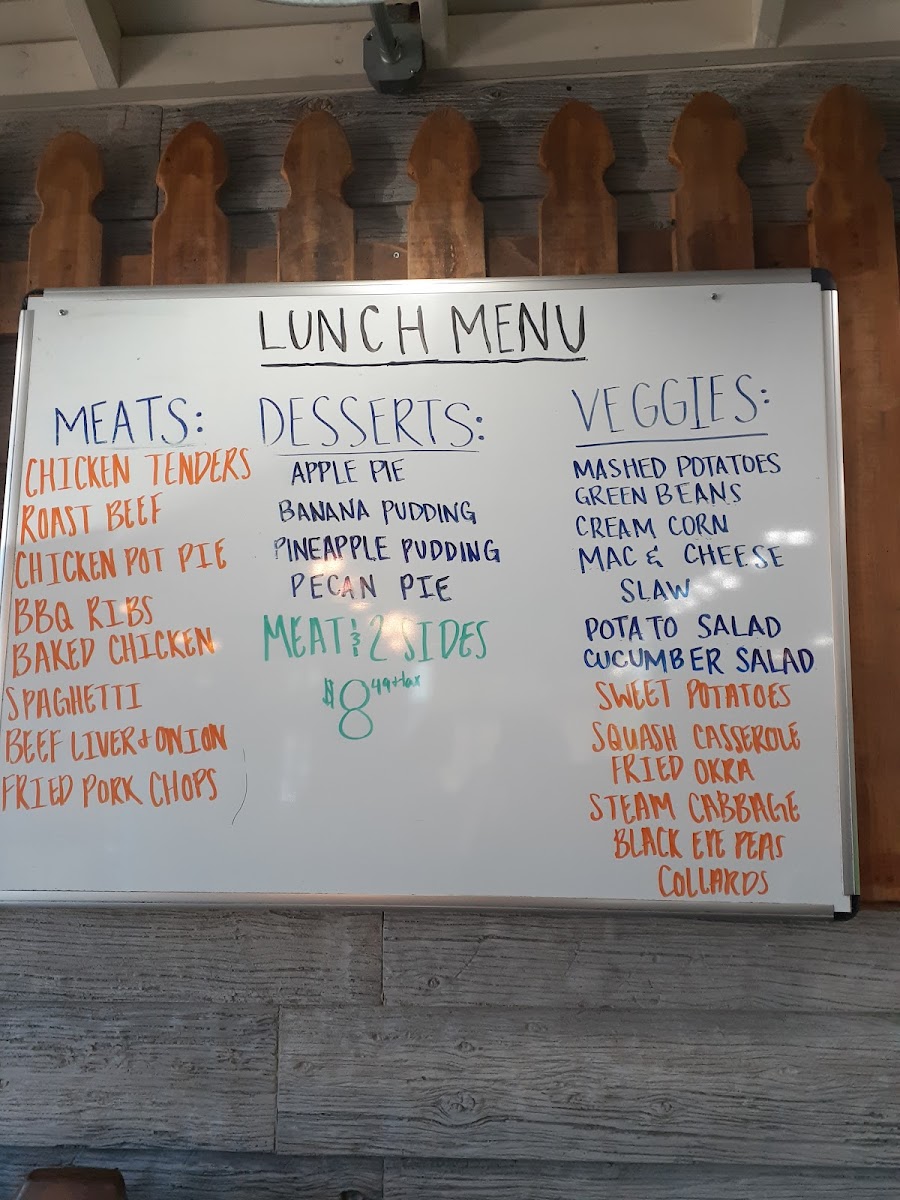 LUNCH MENU
MEATS:
CHICKEN TENDERS
ROAST BEEF
CHICKEN POT PIE
BBQ RIBS
BAKED CHICKEN
SPAGHETTI
BEEF LIVER & ONION
FRIED PORK CHOPS
DESSERTS:
APPLE PIE
BANANA PUDDING
PINEAPPLE PUDDING
PECAN PIE
MEAT & 2 SIDES
$8 49+tax
VEGGIES:
MASHED POTATOES
GREEN BEANS
CREAM CORN
MAC & CHEESE
SLAW
POTATO SALAD
CUCUMBER SALAD
SWEET POTATOES
SQUASH CASSEROLE
FRIED OKRA
STEAM CABBAGE
BLACK EYE PEAS
COLLARDS